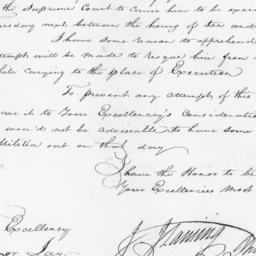 the Supreme Court to cause him to be exe
rsday next between the hours of ten and
I have some reason to apprehend
tempt will be made to resque him from
hile carrying to the place of Execution
To prevent any attempt of this
ave it to Your Excellency's Consideratio
wou'd not be adviseable to have some
Militia out on that day
I have the Honor to be
Your Excellencies Most
Excellency
nor Jay.